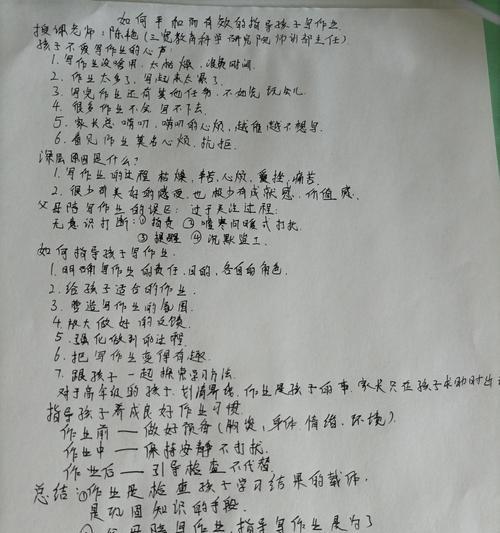 如何平和而有效的指导孩子写作业
授课老师:陈艳(三宽教育科学研究院师训部主任)
孩子不爱写作业的心声
1.写作业没啥用,太枯燥,浪费时间.
2.作业太多了,写起来太累了.
3.写完作业还有其他任务,不如先玩会儿.
4.很多作业不会,写不下去.
5.家长总唠叨,唠叨的心烦,越催越不想写.
6.看见作业莫名心烦,抗拒.
深层原因是什么?
1.写作业的过程枯燥,辛苦,心烦,受挫,痛苦
2.很少有美好的感受,也极少有成就感,价值感.
父母陪写作业的误区:过于关注过程.
无意识打断:①指责 ②嘘寒问暖式打扰
③提醒 ④沉默监工
如何指导孩子写作业.
1.明确写作业的责任,目的,各自的角色.
2.给孩子适合的作业.
3.营造写作业的氛围.
4.放大做好的反馈.
5.强化做到的过程.
6.把写作业变得有趣.
7.跟孩子一起探索学习方法.
对于高年级的孩子,划清界线,作业是孩子的事,家长只在孩子求助时出
指导孩子养成良好作业习惯.
作业前——做好预备(胸怀,身体,情绪,环境).
作业中——保持安静不打扰.
作业后——引导检查不代替.
总结:①作业是检查孩子学习结果的载体,
是巩固知识的手段.
写作业,指导写作业是为了